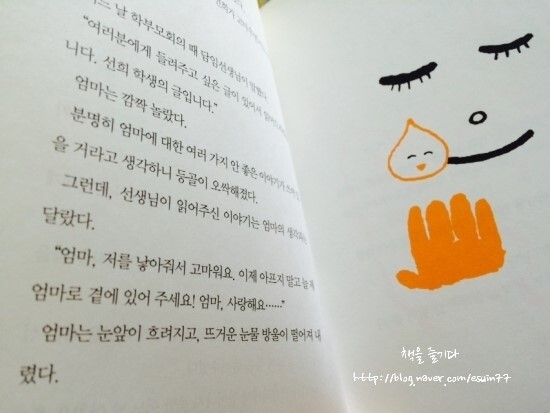 느 날 학부모회의 때 담임선생님이 말했다.
"여러분에게 들려주고 싶은 글이 있어서
니다. 선희 학생의 글입니다."
엄마는 깜짝 놀랐다.
분명히 엄마에 대한 여러 가지 안 좋은 이야기가
을 거라고 생각하니 등골이 오싹해졌다.
그런데, 선생님이 읽어주신 이야기는 엄마의
달랐다.
"엄마, 저를 낳아줘서 고마워요. 이제 아프지 말고 늘
엄마로 곁에 있어 주세요! 엄마, 사랑해요……"
엄마는 눈앞이 흐려지고, 뜨거운 눈물 방울이 떨어져 내
렸다.
책을 즐기다
http://blog.naver.com/esuin77